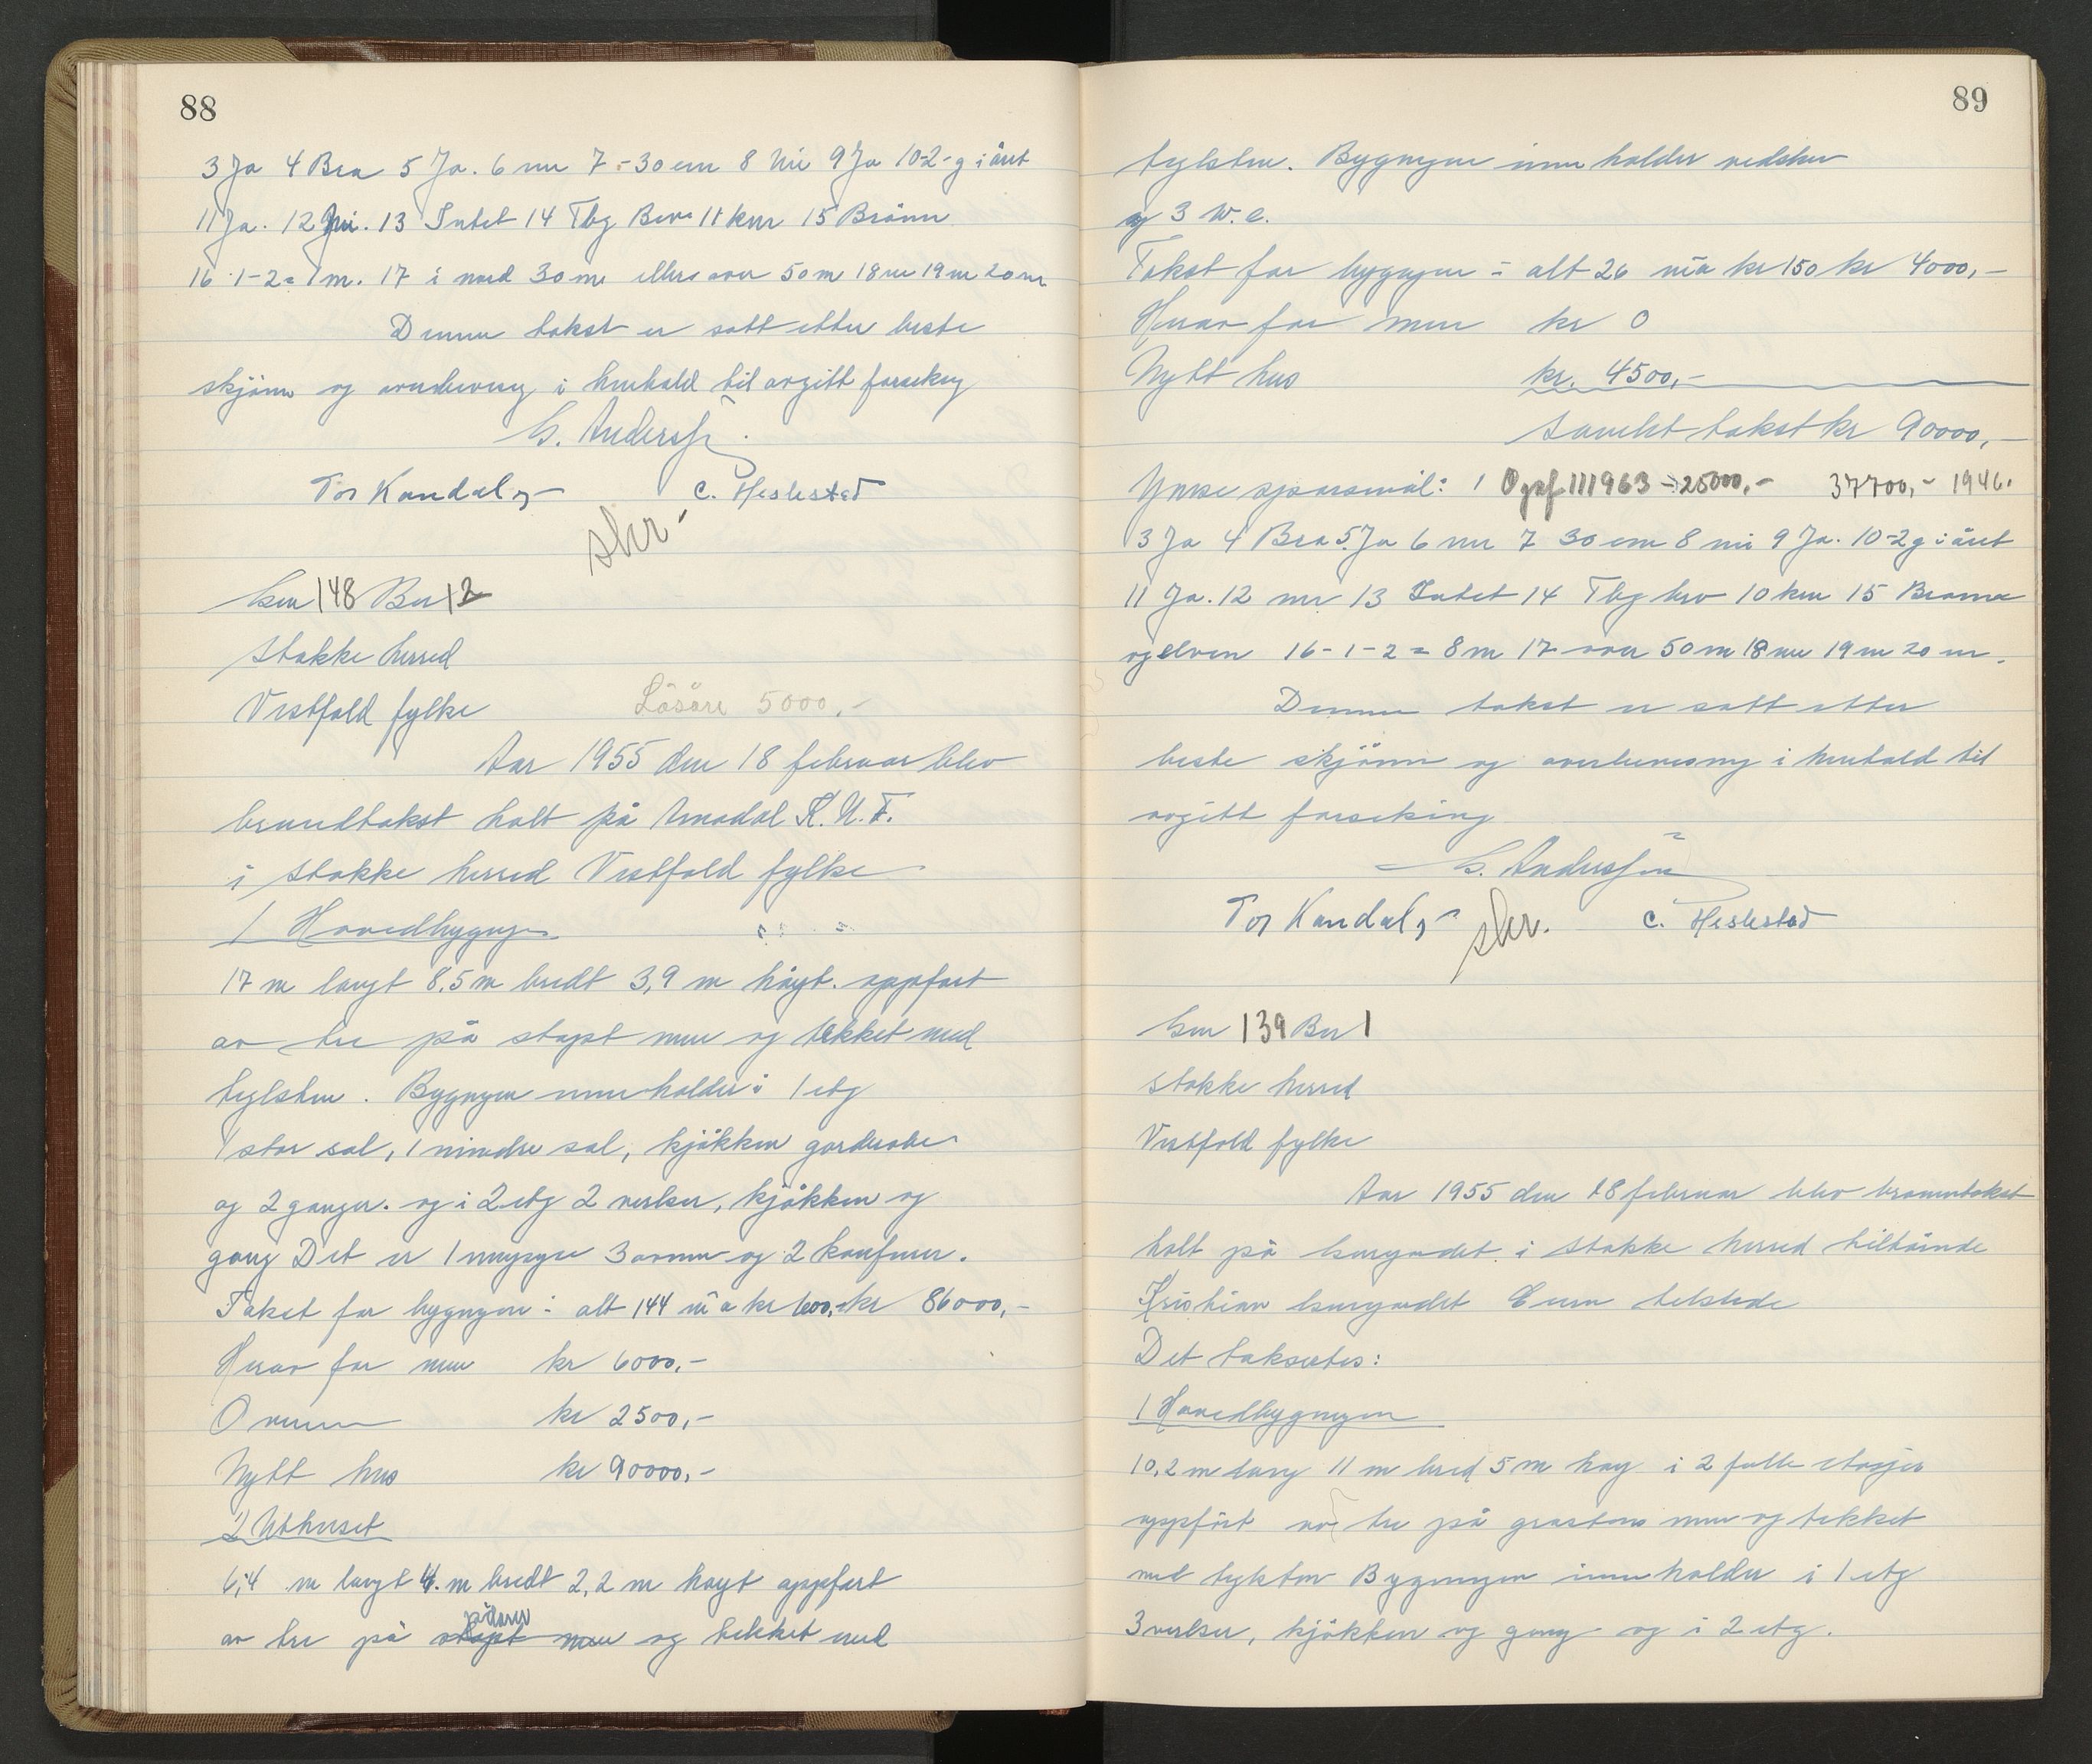 88
3 Ja 4 Bra 5 Ja. 6 nei 7 - 30 cm 8 Nei 9 Ja 10-2-g i året
11 Ja. 12 Nei. 13 Intet 14 Tbg Brv. 11 km 15 Brönn
16 1-2 = 1 m. 17 i nord 30 m ellers over 50 m 18 nei 19 nei 20 nei
Denne takst er satt etter beste
skjönn og overbevisng i henhold til avgitt forsikng
G. Anderssen
Tor Kandal, C. Heslestad
skr
Gnr 148 Bnr 12
Stokke herred
Vestfold fylke Lösöre 5000,-
Aar 1955 den 18 februar blev
branntakst holt på K.U.F.
i Stokke herred Vestfold fylke
1 Hovedbygngen
17 m langt 8,5 m bredt 3,9 m höyt. oppfört
av tre på stöpt mur og tekket med
teglsten. Bygngen inneholder i 1 etg
1 stor sal, 1 mindre sal, kjökken garderobe
og 2 ganger. og i 2 etg 2 verlser, kjökken og
gang Det er 1 murpipe 3 ovner og 2 komfurer.
Takst for bygngen i alt 144 m² a kr 600,- kr 86000,-
Herav for mur kr 6000,-
Ovnen kr 2500,-
Nytt hus kr 90000,-
2 Uthuset
6,4 m langt 4. m bredt 2,2 m höyt oppfört
pilarer
av tre på stöpt mur og tekket med
89
teglsten. Bygngen inneholder vedskur
og 3 W.C.
Takst for bygngen i alt 26 m² a kr 150 kr 4000,-
Herav for mur kr 0
Nytt hus kr. 4500,-
Samlet takst kr 90000,-
Ymse spörsmål: 1 Oppf 111963 - 25000,- 37700,- 1946.
3 Ja 4 Bra 5. Ja 6 nei 7 30 cm 8 nei 9 Ja. 10-2 g i året
11 Ja. 12 nei 13 Intet 14 Tbg brv 10 km 15 Brönn
og elven 16 - 1-2 = 8 m 17 over 50 m 18 nei 19 nei 20 nei.
Denne takst er satt etter
beste skjönn og overbevisng i henhold til
avgitt forsikring
G. Anderssen
Tor Kandal, skr. C. Heslestad
Gnr 139 Bnr 1
Stokke herred
Vestfold fylke
Aar 1955 den 18 februar blev branntakst
holt på i Stokke herred tilhörende
Kristian Eiern tilstede
Det taksertes:
1 Hovedbygngen
10,2 m lang 11 m bred 5 m höy i 2 fulle etasjer
oppfört av tre på gråstens mur og tekket
med teglsten Bygningen inneholder i 1 etg
3 verlser, kjökken og gang og i 2 etg.